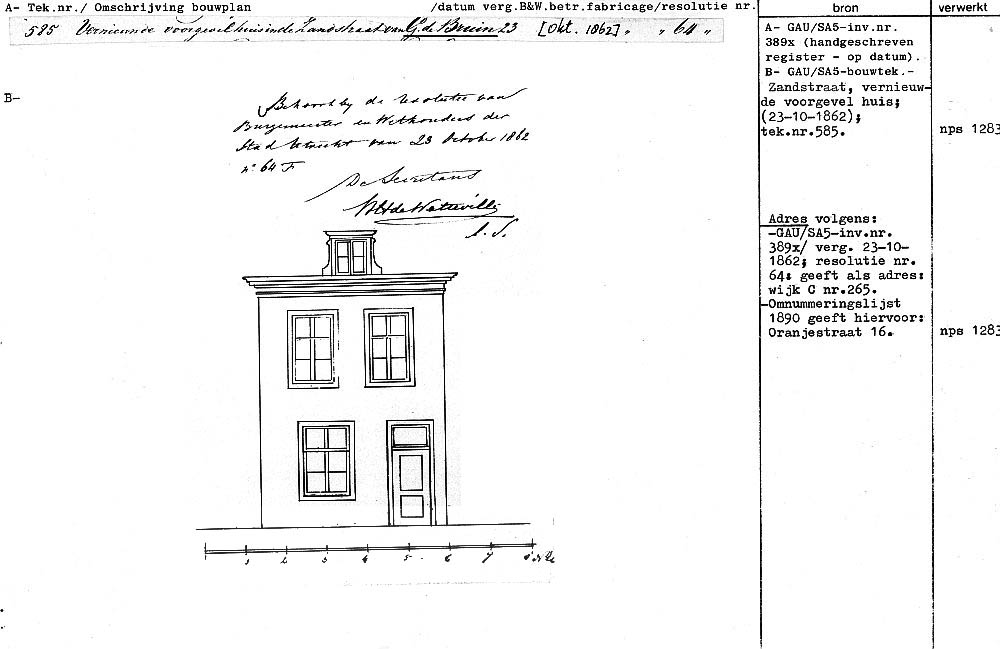 A- Tek.nr./ Omschrijving bouwplan /datum verg.B&W.betr.fabricage/resolutie nr.
585 Vernieuwde voorgevel huis in de Zandstraat van G. de Bruin 23 [Okt. 1862] " " 64 "
B-
Behoort bij de resolutie van
Burgemeester en Wethouders der
Stad Utrecht van 23 October 1862
n° 64 F
De Secretaris
l. S.
1 2 3 4 5 6 7 8
bron
A- GAU/SA5-inv.nr.
389x (handgeschreven
register - op datum).
B- GAU/SA5-bouwtek.-
Zandstraat, vernieuw-
de voorgevel huis;
(23-10-1862);
tek.nr.585.
Adres volgens:
-GAU/SA5-inv.nr.
389x/ verg. 23-10-
1862; resolutie nr.
64: geeft als adres:
wijk C nr.265.
-Omnummeringslijst
1890 geeft hiervoor:
Oranjestraat 16.
verwerkt
nps 1283
nps 1283